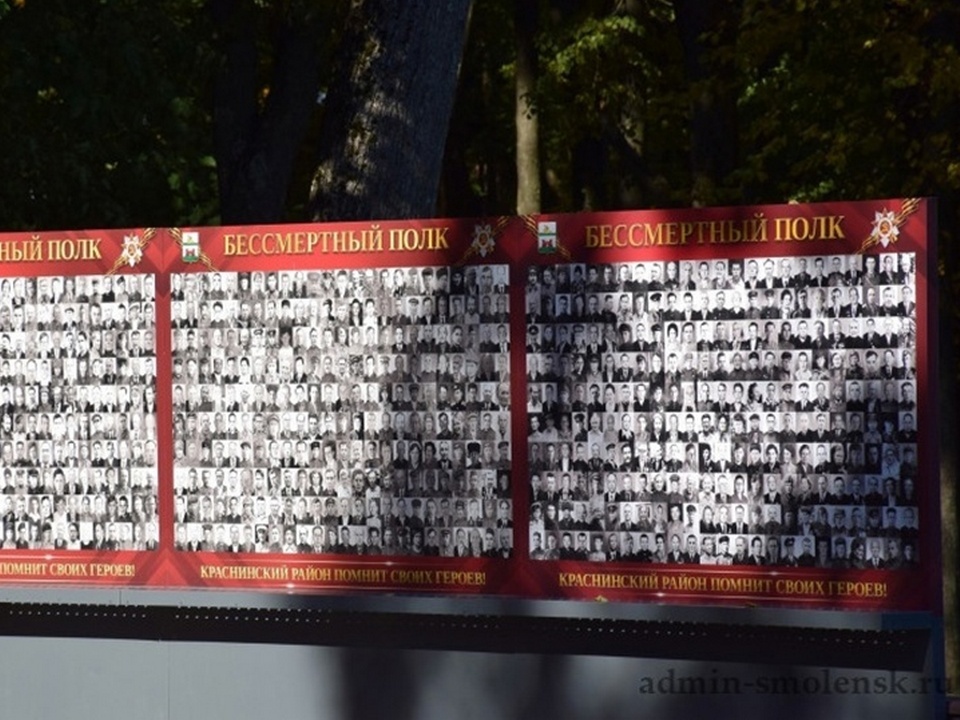 НЫЙ ПОЛК
БЕССМЕРТНЫЙ ПОЛК
БЕССМЕРТНЫЙ ПОЛК
ПОМНИТ СВОИХ ГЕРОЕВ!
КРАСНИНСКИЙ РАЙОН ПОМНИТ СВОИХ ГЕРОЕВ!
КРАСНИНСКИЙ РАЙОН ПОМНИТ СВОИХ ГЕРОЕВ!
admin-smolensk.ru